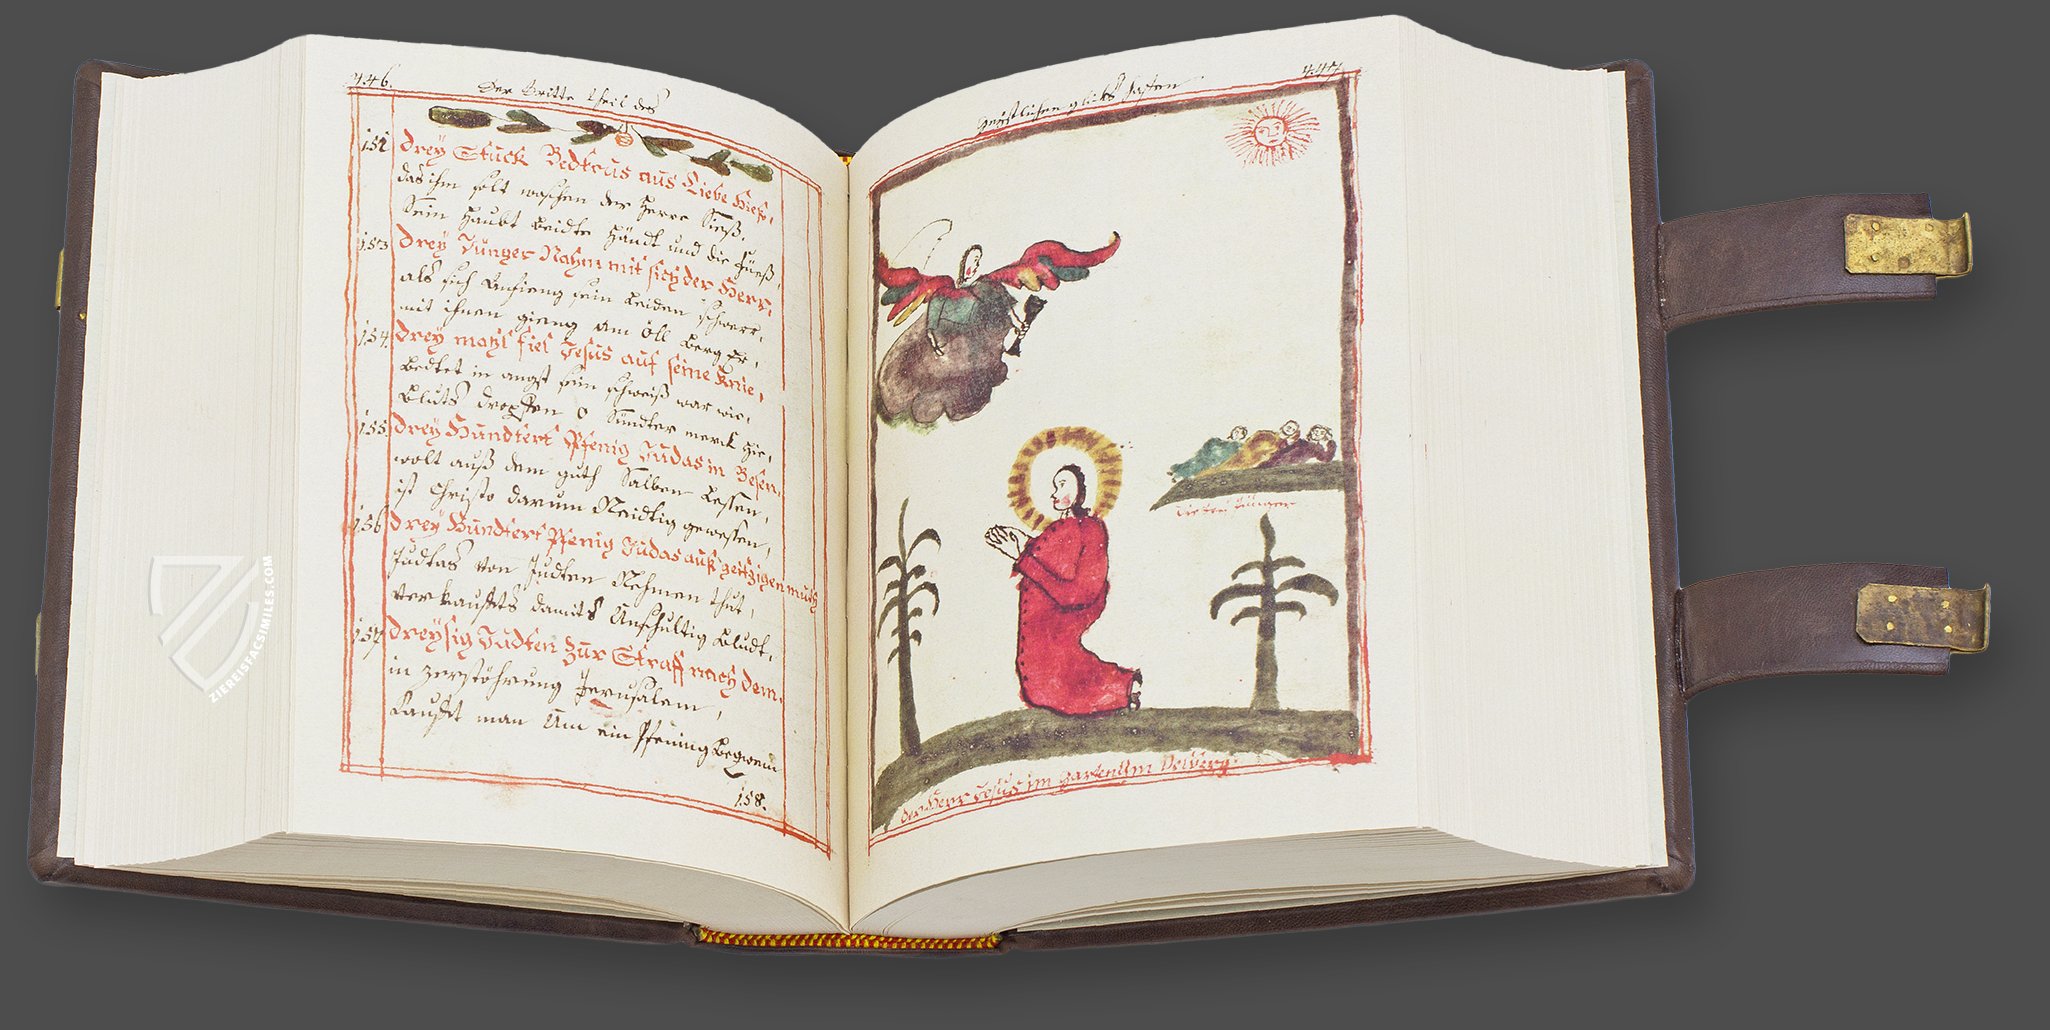 446.
Der Dritte theil des
152 drey Stuck Bedteüs aus Liebe Hieß,
das ihm solt waschen der Herre Süeß,
Sein Haubt beidte Händt und die Füeß,
153 drey Jünger Nahm mit sich der Herr,
als sich Anfieng sein Leiden schwerr,
mit ihnen gieng am Öll berg Er,
154. drey mahl fiel Jesus auf seine Knie,
Bedtet in angst sein schweiß war wie,
Bluts dropffen O Sündter merck hie,
155. drey Hundtert Pfenig Judas in Besen,
wolt auß dem guth Salben Lessen,
ist Christo darum Neidtig gewessen,
156 drey Hundtert Pfenig Judas auß geitzigen muth
Judtas von Judten Nehmen thut,
verkauffts damits Unschultig Bludt,
157 dreysig Judten Zur Straff nach dem,
in zerstöhrung Jerusalem,
Kaufft man Um ein Pfening Beqwem
158.
447
geistlichen glicks hafften
die drei Jünger
der Herr Jesus im garten am Ölberg
ZIEREISFACSIMILES.COM